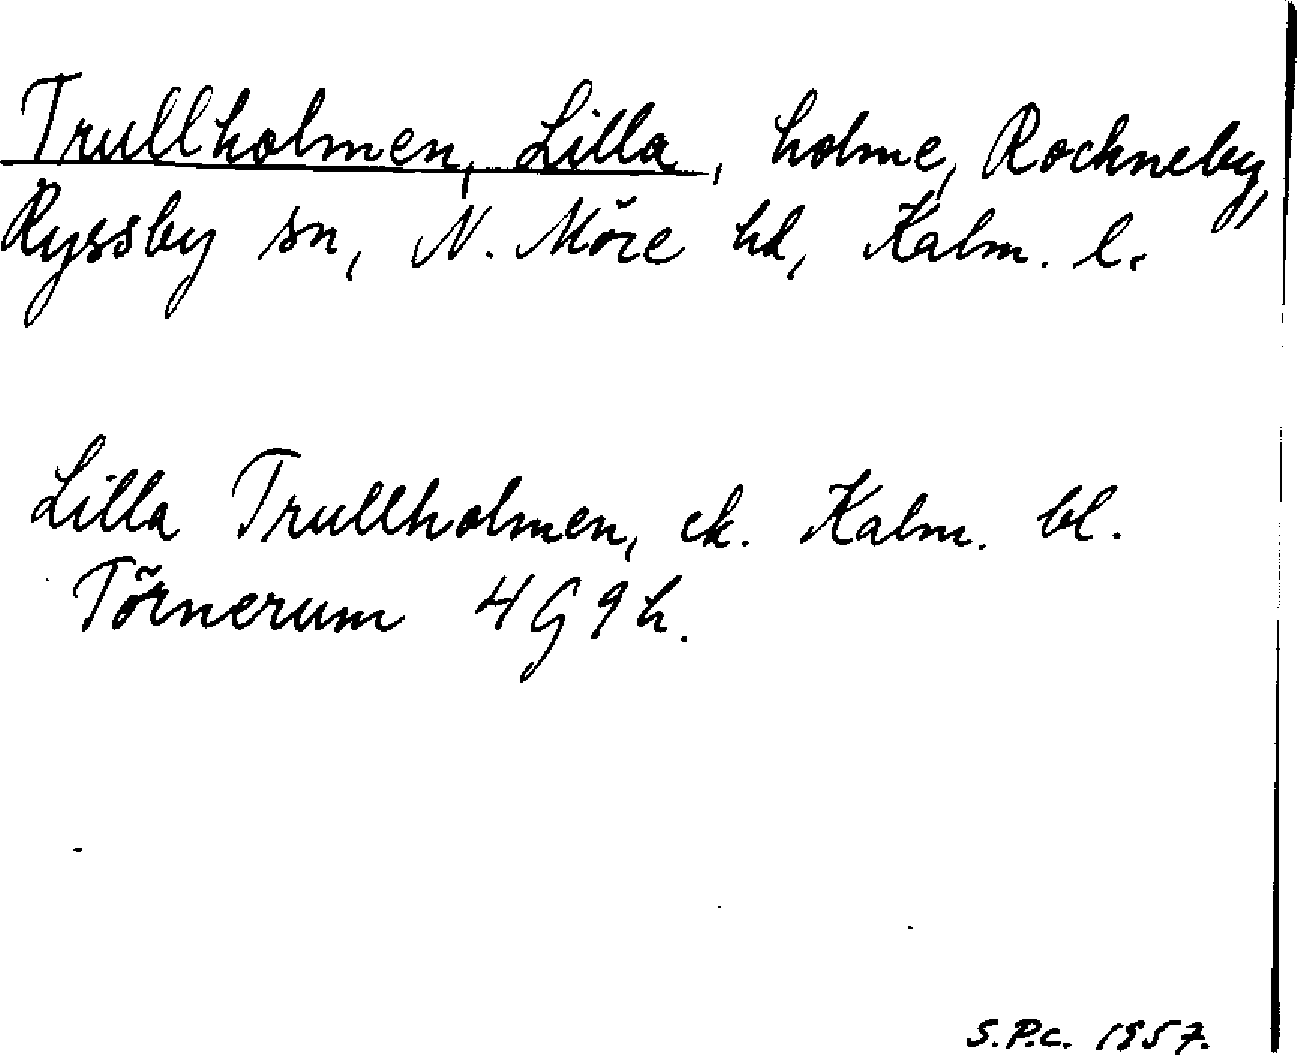 Trullholmen, Lilla, holme, Rockneby,
Ryssby sn, N. Möre hd, Kalm. l.
Lilla Trullholmen, ek. Kalm. bl.
Törnerum 4G9h.
S.P.C. 1957.